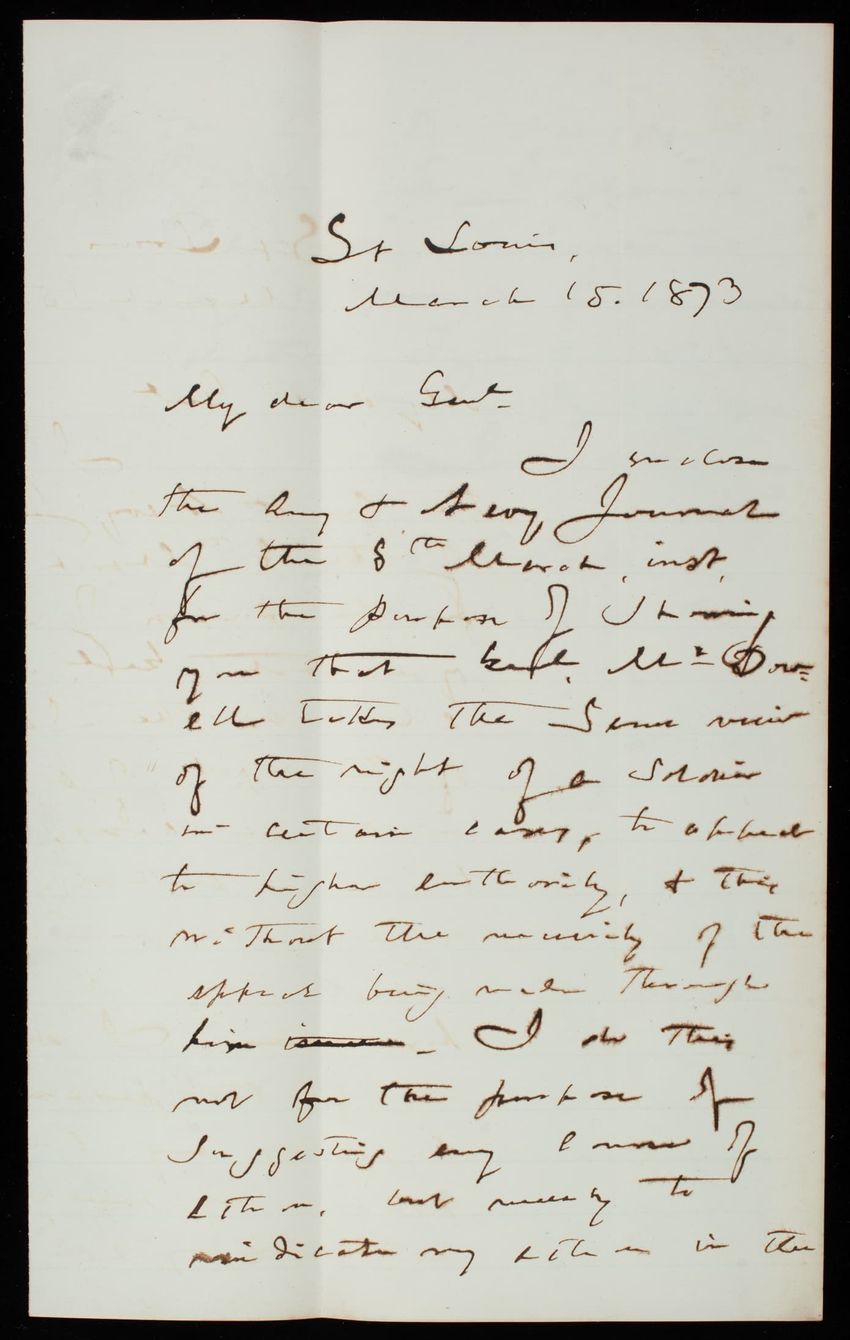 St Louis,
March 15. 1873
My dear Genl-
I enclose
the Army & Navy Journal
of the 8th March, inst,
for the purpose of Showing
you that Genl. McDow=
ell takes the Same view
of the right of a Soldier
in certain cases, to appeal
to higher authority, & this
without the necessity of the
appeal being made through
him. I do this
not for the purpose of
Suggesting any course of
action, but merely to
vindicate my action in the